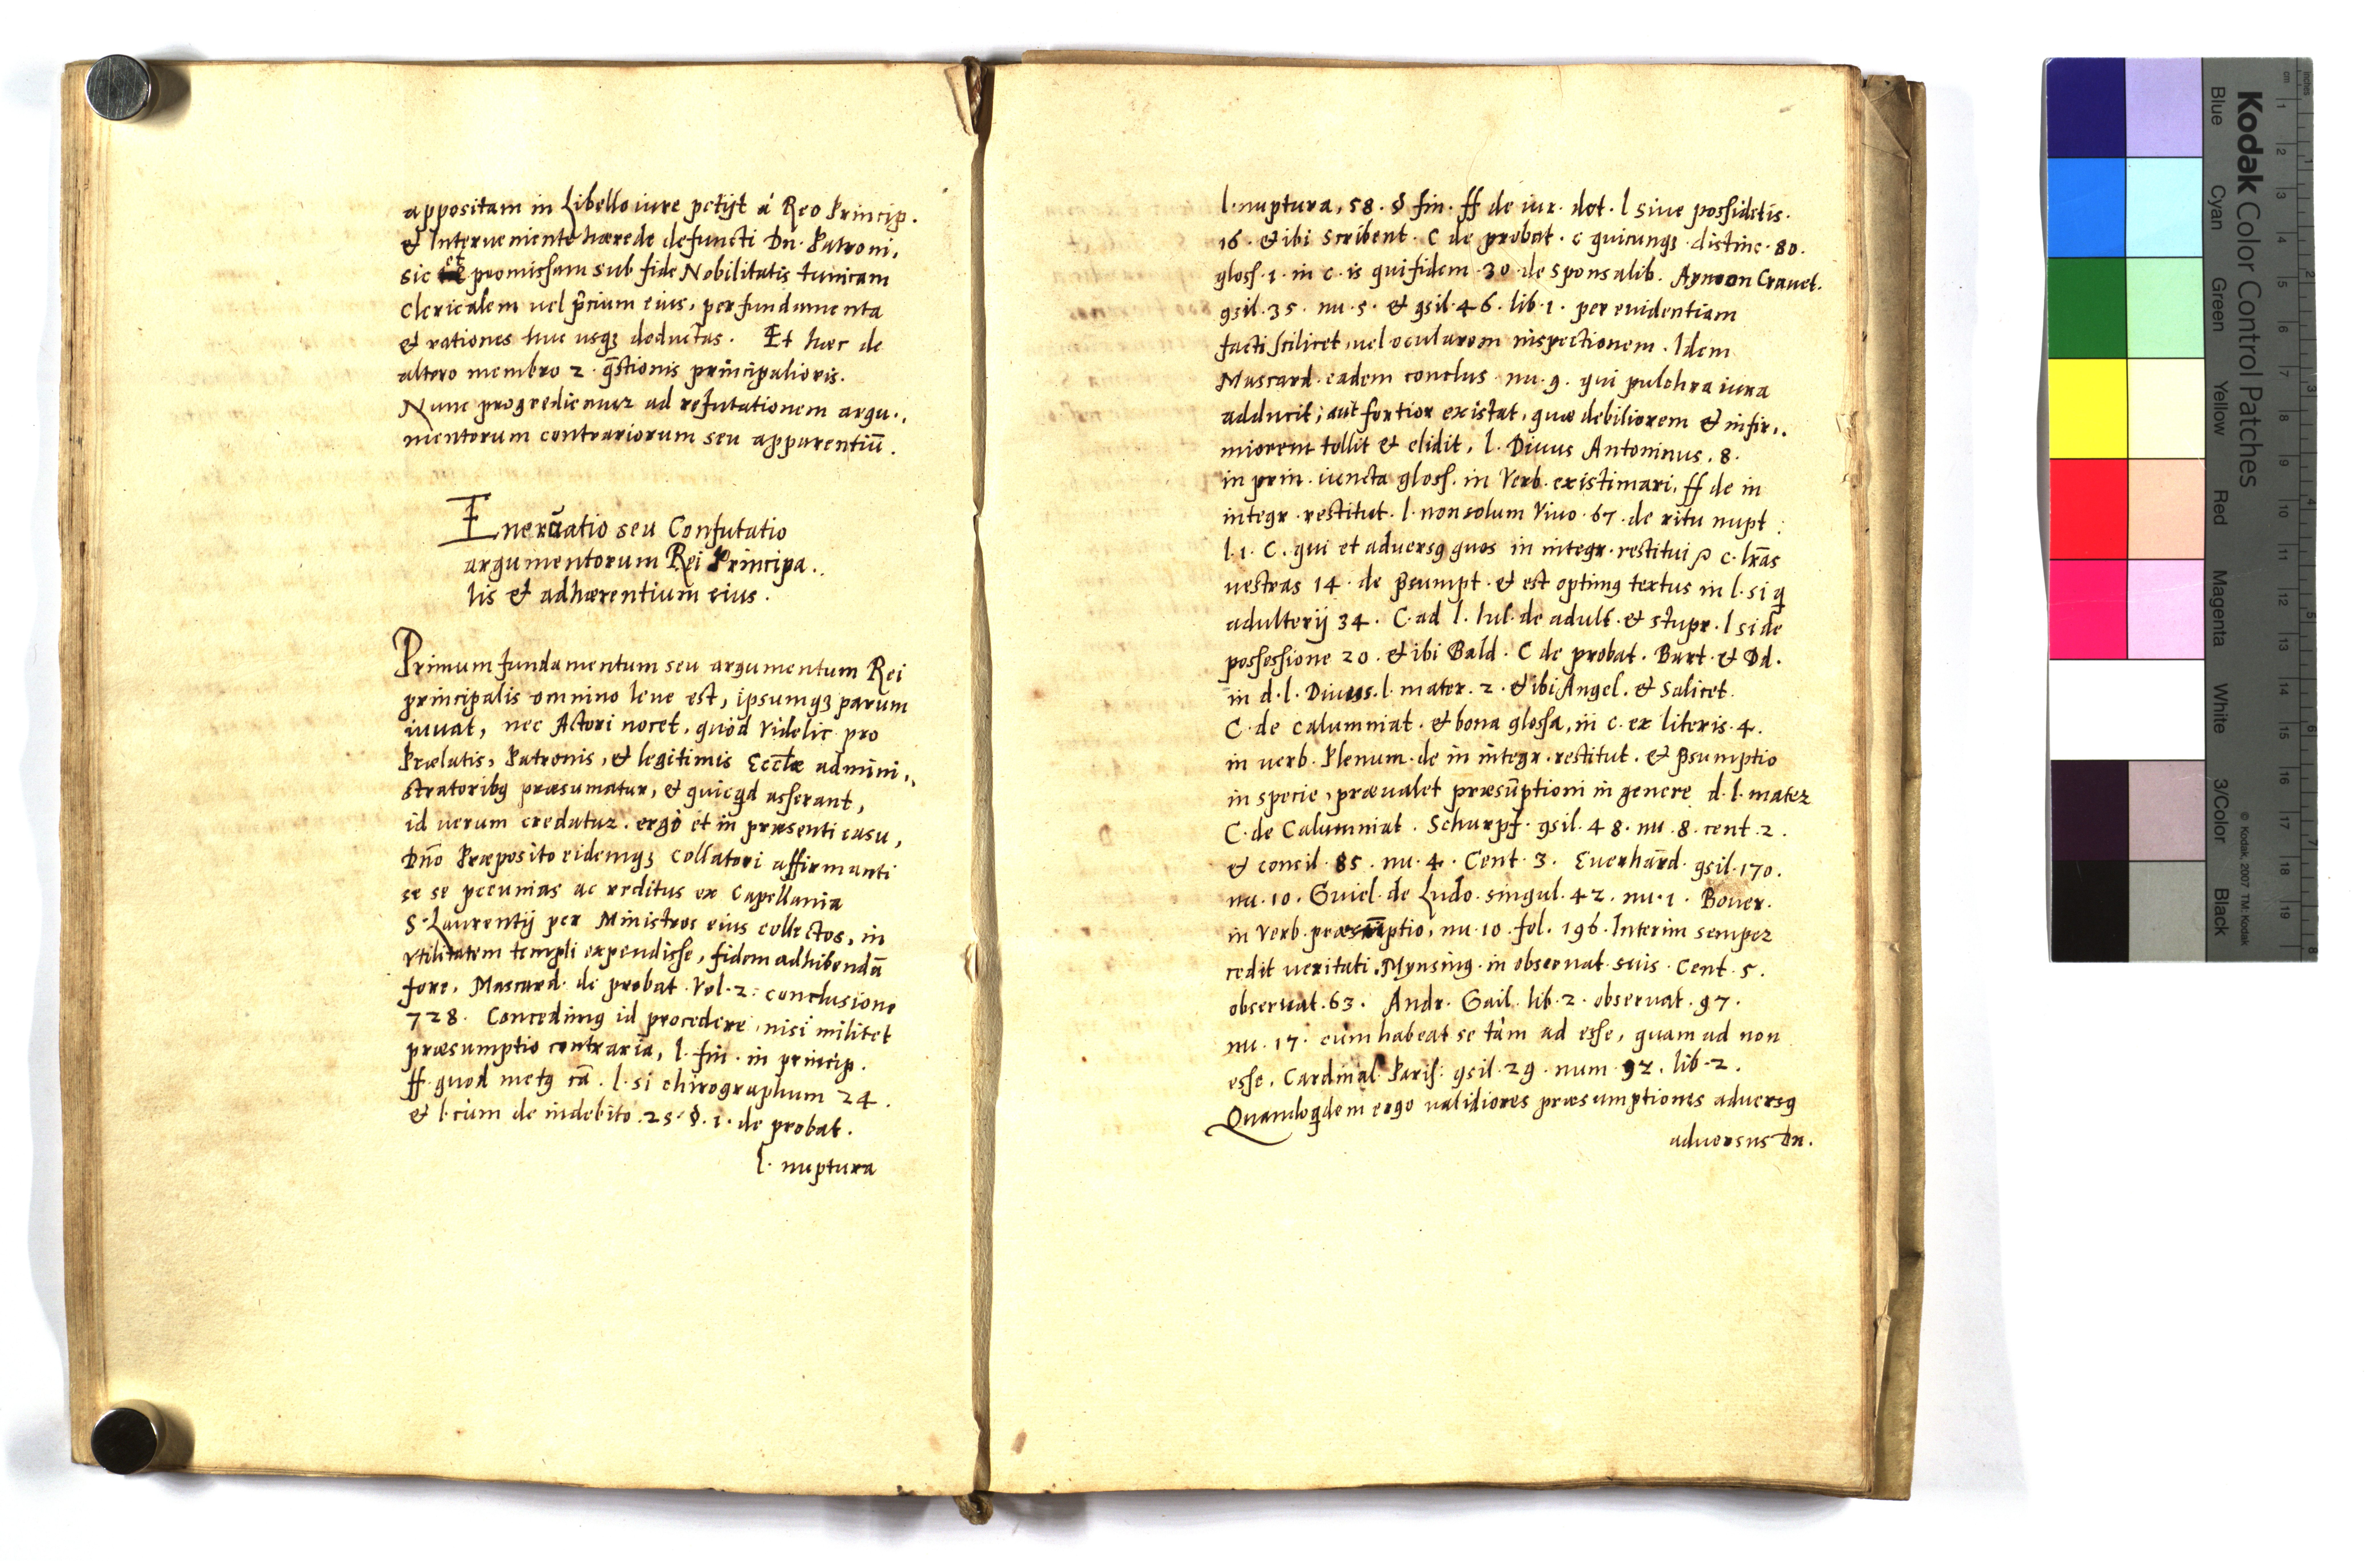 appositam in Libello iure petijt á Reo Princip.
& Interueniente hærede defuncti Dn. Patroni,
sic et promissam sub fide Nobilitatis tunicam
Clericalem uel p̄cium eius, per fundamenta
et rationes huc usqꝫ deductas. Et hæc de
altero membro 2. q̄stionis principalioris.
Nunc progredienur ad refutationem argu.,
mentorum contrariorum seu apparentiū.
Eneruatio seu Confutatio
argumentorum Rei Principa.,
lis & adhærentium eius.
Primum fundamentum seu argumentum Rei
principalis omnino leue est, ipsumqꝫ parum
iuuat, nec Actori nocet, quòd videlic. pro
Prælatis, Patronis, & legitimis Eccłæ admini.,
stratoribꝯ præsumatur, & quicq̄d asserant,
id uerum credatur. ergò et in præsenti casu,
Dn̄o Præposito eidemqꝫ collatori affirmanti
se se pecunias ac reditus ex Capellania
S. Laurentij per Ministros eius collectos, in
vtilitatem templi expendisse, fidem adhibendā
fore. Mascard. de probat. Vol. 2. conclusione
728. Concedimꝯ id procedere, nisi militet
præsumptio contraria, l. fin. in princip.
ff. quod metꝯ cā. l. si chirographum 24.
& l. cùm de indebito. 25. §. 1. de probat.
l. nuptura
l. nuptura, 58. § fin. ff de iur. dot. l siue possidetis.
16. & ibi Scribent. C de probat. c quicunqꝫ distinc. 80.
gloss. 1. in c. is qui fidem 30 de Sponsalib. Aymon Crauet.
ꝯsil. 35. nu. 5. & ꝯsil. 46. lib. 1. per euidentiam
facti scilicet, uel ocularem inspectionem. Idem
Mascard. eadem conclus. nu. 9. qui pulchra iura
adducit; aut fortior existat, quæ debiliorem & infir.,
miorem tollit & elidit, l. Diuus Antoninus. 8.
in prin. iuncta gloss. in Verb. existimari. ff de in
integr. restitut. l. non solum Viuo. 67. de ritu nupt:
l. 1. C. qui et aduersꝯ quos in integr. restitui ꝑ c. lr̄as
uestras 14. de p̄sumpt. & est optimꝯ textus in l. si q̄
adulterij 34. C. ad l. Iul. de adult. & stupr. l si de
possessione 20. & ibi Bald. C de probat. Bart. & Dd.
in d. l. Diuus. l. mater. 2. & ibi Angel. & Salicet.
C. de calumniat. & bona glossa, in c. ex literis. 4.
in uerb. Plenum. de in integr. restitut. & p̄sumptio
in specie, præualet præsūptioni in genere d. l. mater
C. de Calumniat. Schurpf. ꝯsil. 48. nu. 8. cent. 2.
& consil. 85. nu. 4. Cent. 3. Euerhard. ꝯsil. 170.
nu. 10. Guiel. de Ludo. singul. 42. nu. 1. Bouer.
in Verb. præsūptio, nu. 10. fol. 196. Interim semper
cedit ueritati. Mynsingꝯ in obseruat. suis. Cent. 5.
obseruat. 63. Andr. Gail. lib. 2. obseruat. 97.
nu. 17. cùm habeat se tàm ad esse, quam ad non
esse. Cardinal. Paris: ꝯsil. 29. num. 92. lib. 2.
Quandoq̄dem ergo ualidiores præsumptiones aduersꝯ
aduersus Dn.
Kodak Color Control Patches
Blue Cyan Green Yellow Red Magenta White 3/Color Black
© Kodak, 2007 TM: Kodak
cm 1 2 3 4 5 6 7 8 9 10 11 12 13 14 15 16 17 18 19
inches 1 2 3 4 5 6 7 8